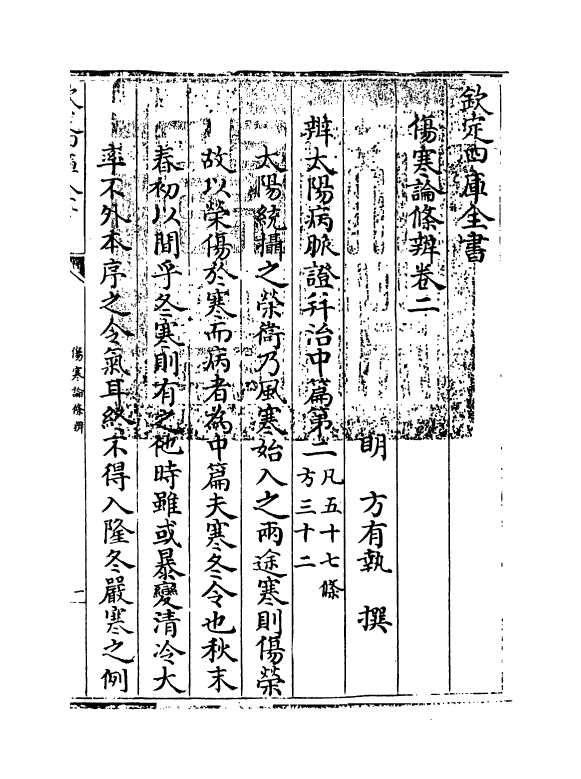 欽定四庫全書
傷寒論條辨卷二
明 方有執 撰
辨太陽病脈證并治中篇第二凡五十七條
方三十二
太陽統攝之榮衛乃風寒始入之兩途寒則傷榮
故以榮傷於寒而病者為中篇夫寒冬令也秋末
春初以間乎冬寒則有之他時雖或暴變清冷大
率不外本序之令氣耳終不得入隆冬嚴寒之例
傷寒論條辨
二